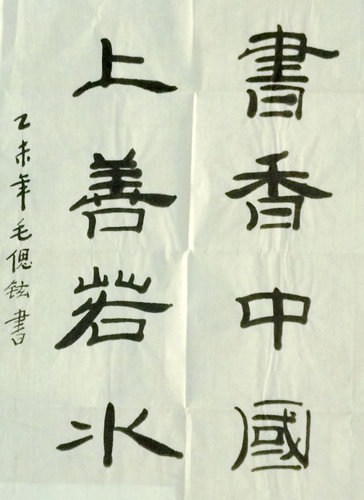 書香中國
上善若水
乙未年毛偲鉉書